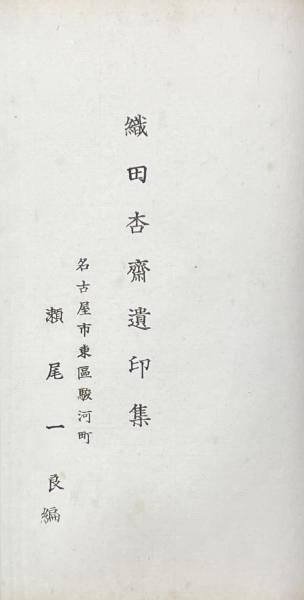 織田杏齋遺印集
名古屋市東區駿河町
瀬尾一良編